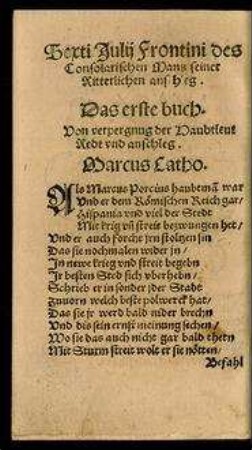 Sexti Julij Frontini des
Consolarischen Mans seiner
Ritterlichen ansbeg.
Das erste buch.
Von verpergnug der Haubtleut
Redt vnd anschleg.
Marcus Catho.
Als Marcus Porcius haubtmā war
Vnd er dem Römischen Reich gar/
Hispania vnd viel der Stedt
Mit krig vn̄ streit bezwungen het/
Vnd er auch forcht jrn stolzen sin
Das sie nochmalen wider jn/
Jn newe krieg vnd streit begebn
Jr besten Sted sich vberhebn/
Schrieb er in sonder jder Stadt
Zuuorn welch beste polwerck hat/
Das sie jr werd bald nider brechn
Vnd dis sein ernst meinung sechen/
Wo sie das auch nicht gar bald thetn
Mit Sturm streit wolt er sie nötten/
Befahl